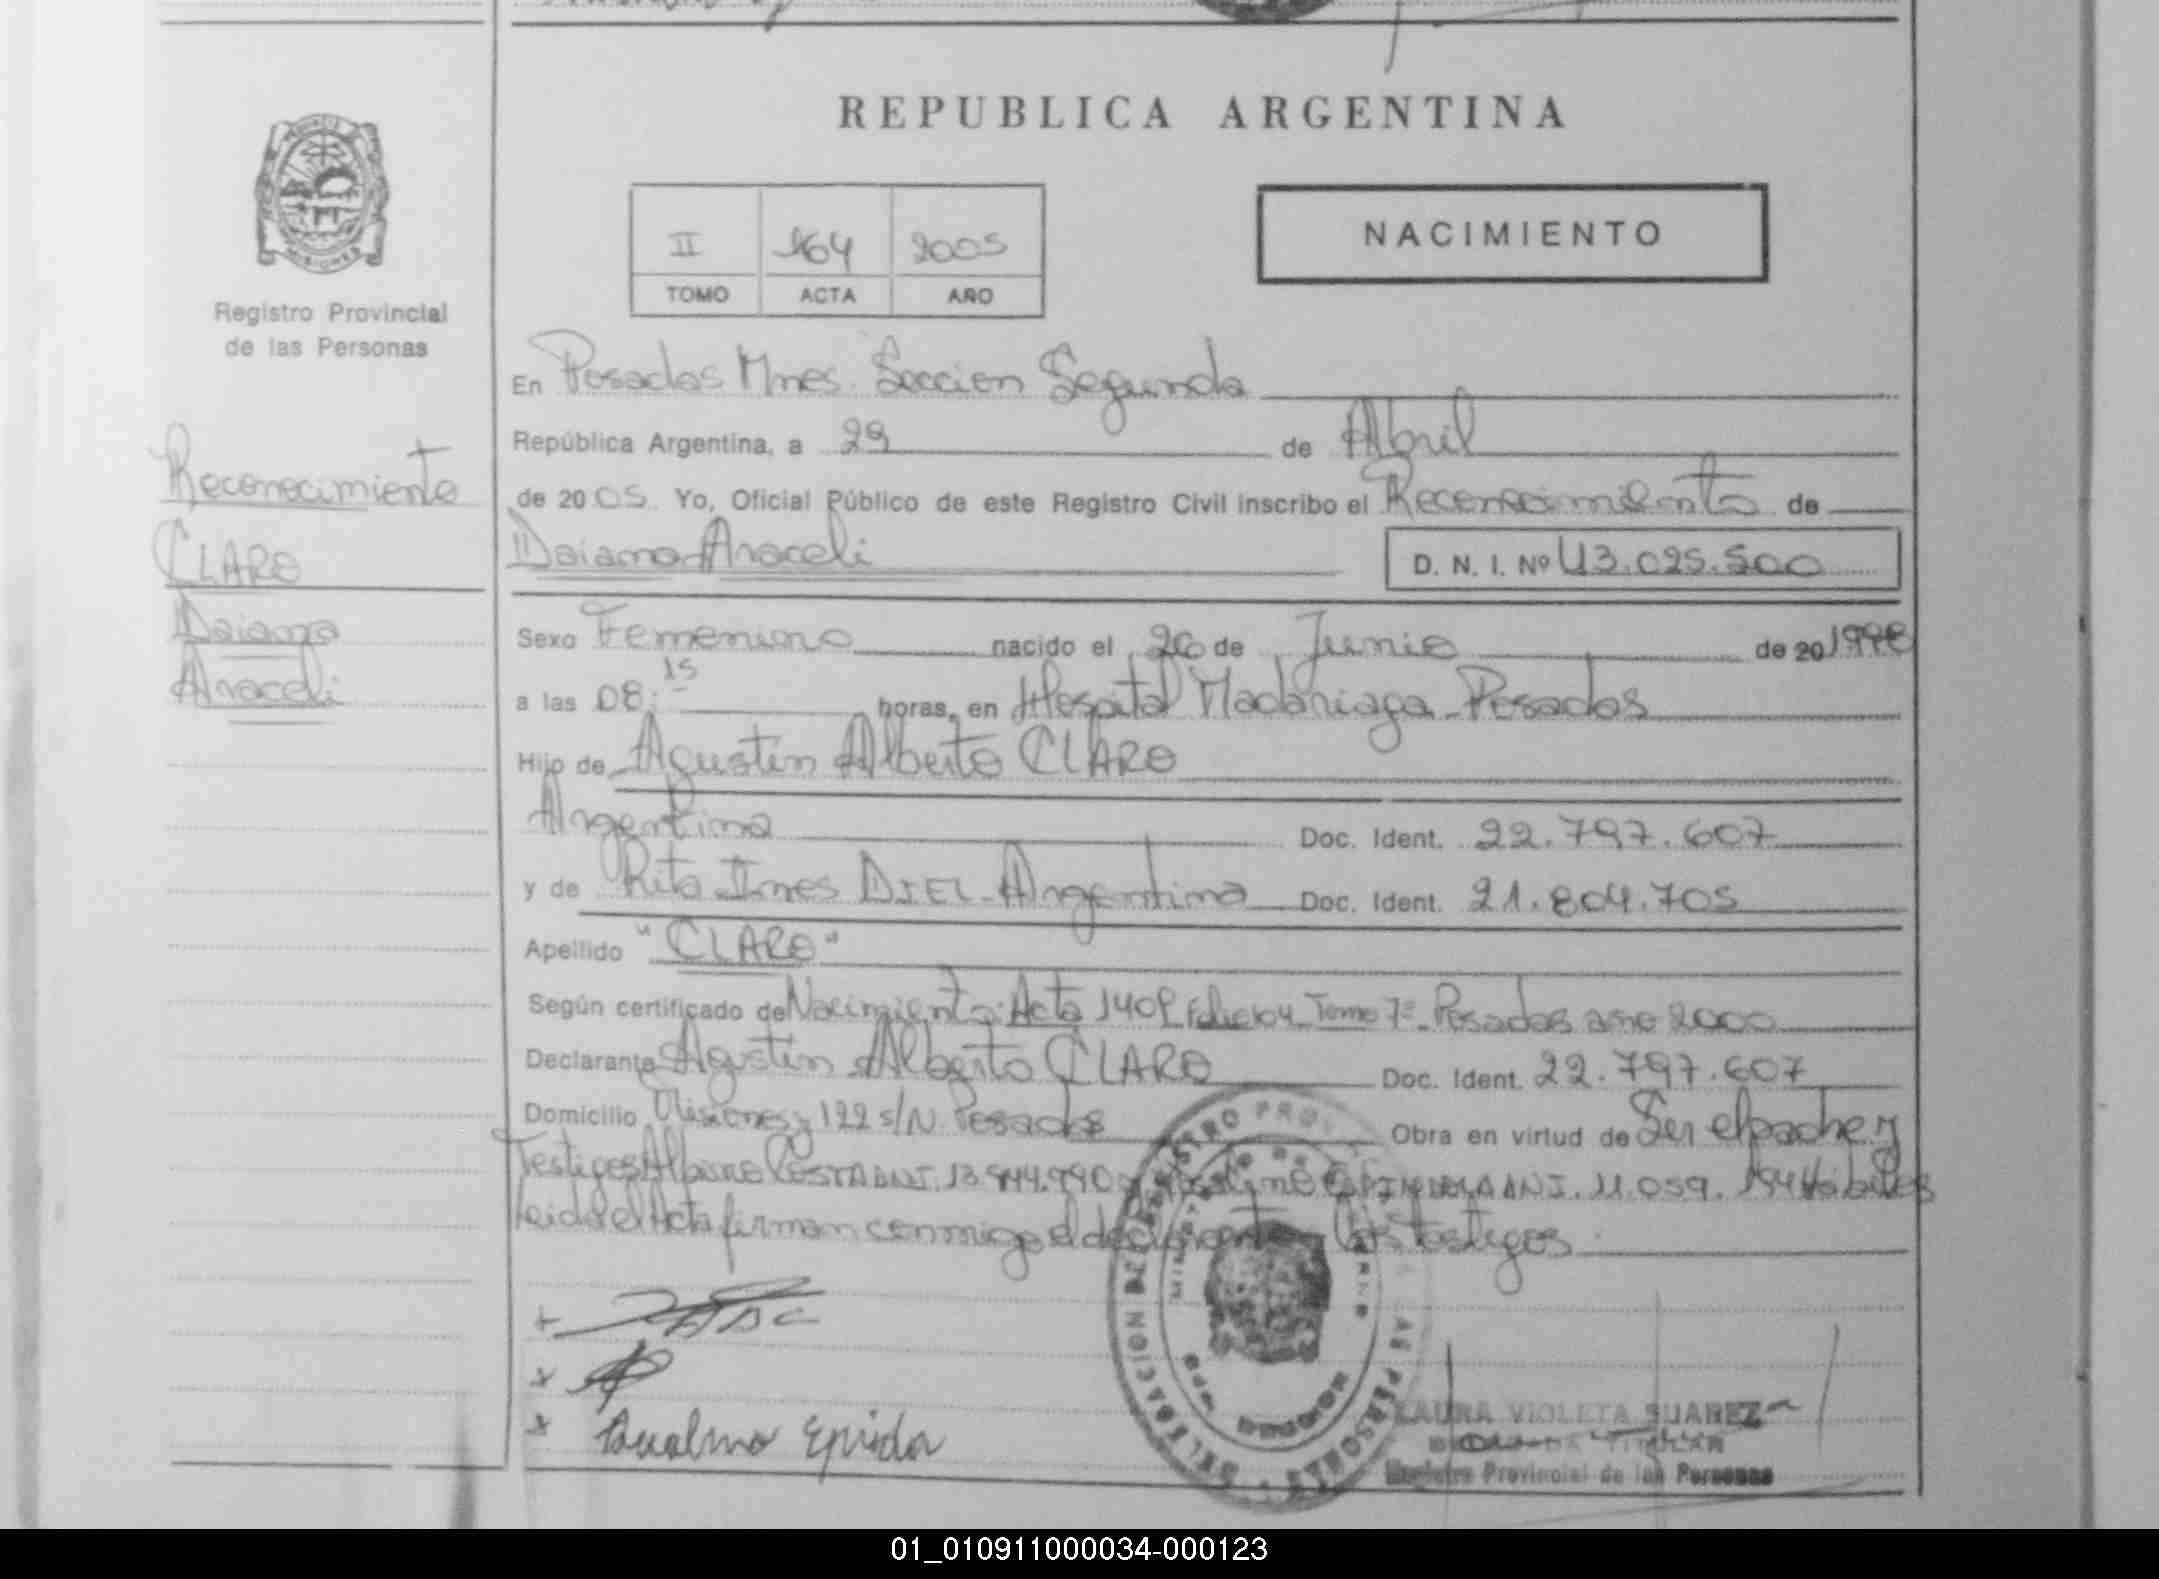 REPUBLICA ARGENTINA
II 164 2005
TOMO ACTA AÑO
NACIMIENTO
Registro Provincial
de las Personas
Reconocimiento
CLARO
Daiana
Araceli
En Posadas Mnes. Seccion Segunda
República Argentina, a 29 de Abril
de 20 05. Yo, Oficial Público de este Registro Civil inscribo el Reconocimiento de
Daiana Araceli D. N. I. Nº 43.025.500
Sexo Femenino nacido el 26 de Junio de 20
a las 08:15 horas, en Hospital Madariaga Posadas
Hijo de Agustin Alberto CLARO
Argentina Doc. Ident. 22.797.607
y de Rita Ines DIEL - Argentina Doc. Ident. 21.804.705
Apellido "CLARO"
Según certificado de Nacimiento: Acta Tomo 7º Posadas año 2000
Declarante Agustin Alberto CLARO Doc. Ident. 22.797.607
Domicilio Misiones y 122 s/N. Posadas Obra en virtud de Ser el padre y
Testigos COSTA DNI. DNI. 11.059. Habiles
Leida el Acta firman conmigo el declarante los testigos
LAURA VIOLETA SUAREZ
TITULAR
Registro Provincial de las Personas
01_010911000034-000123